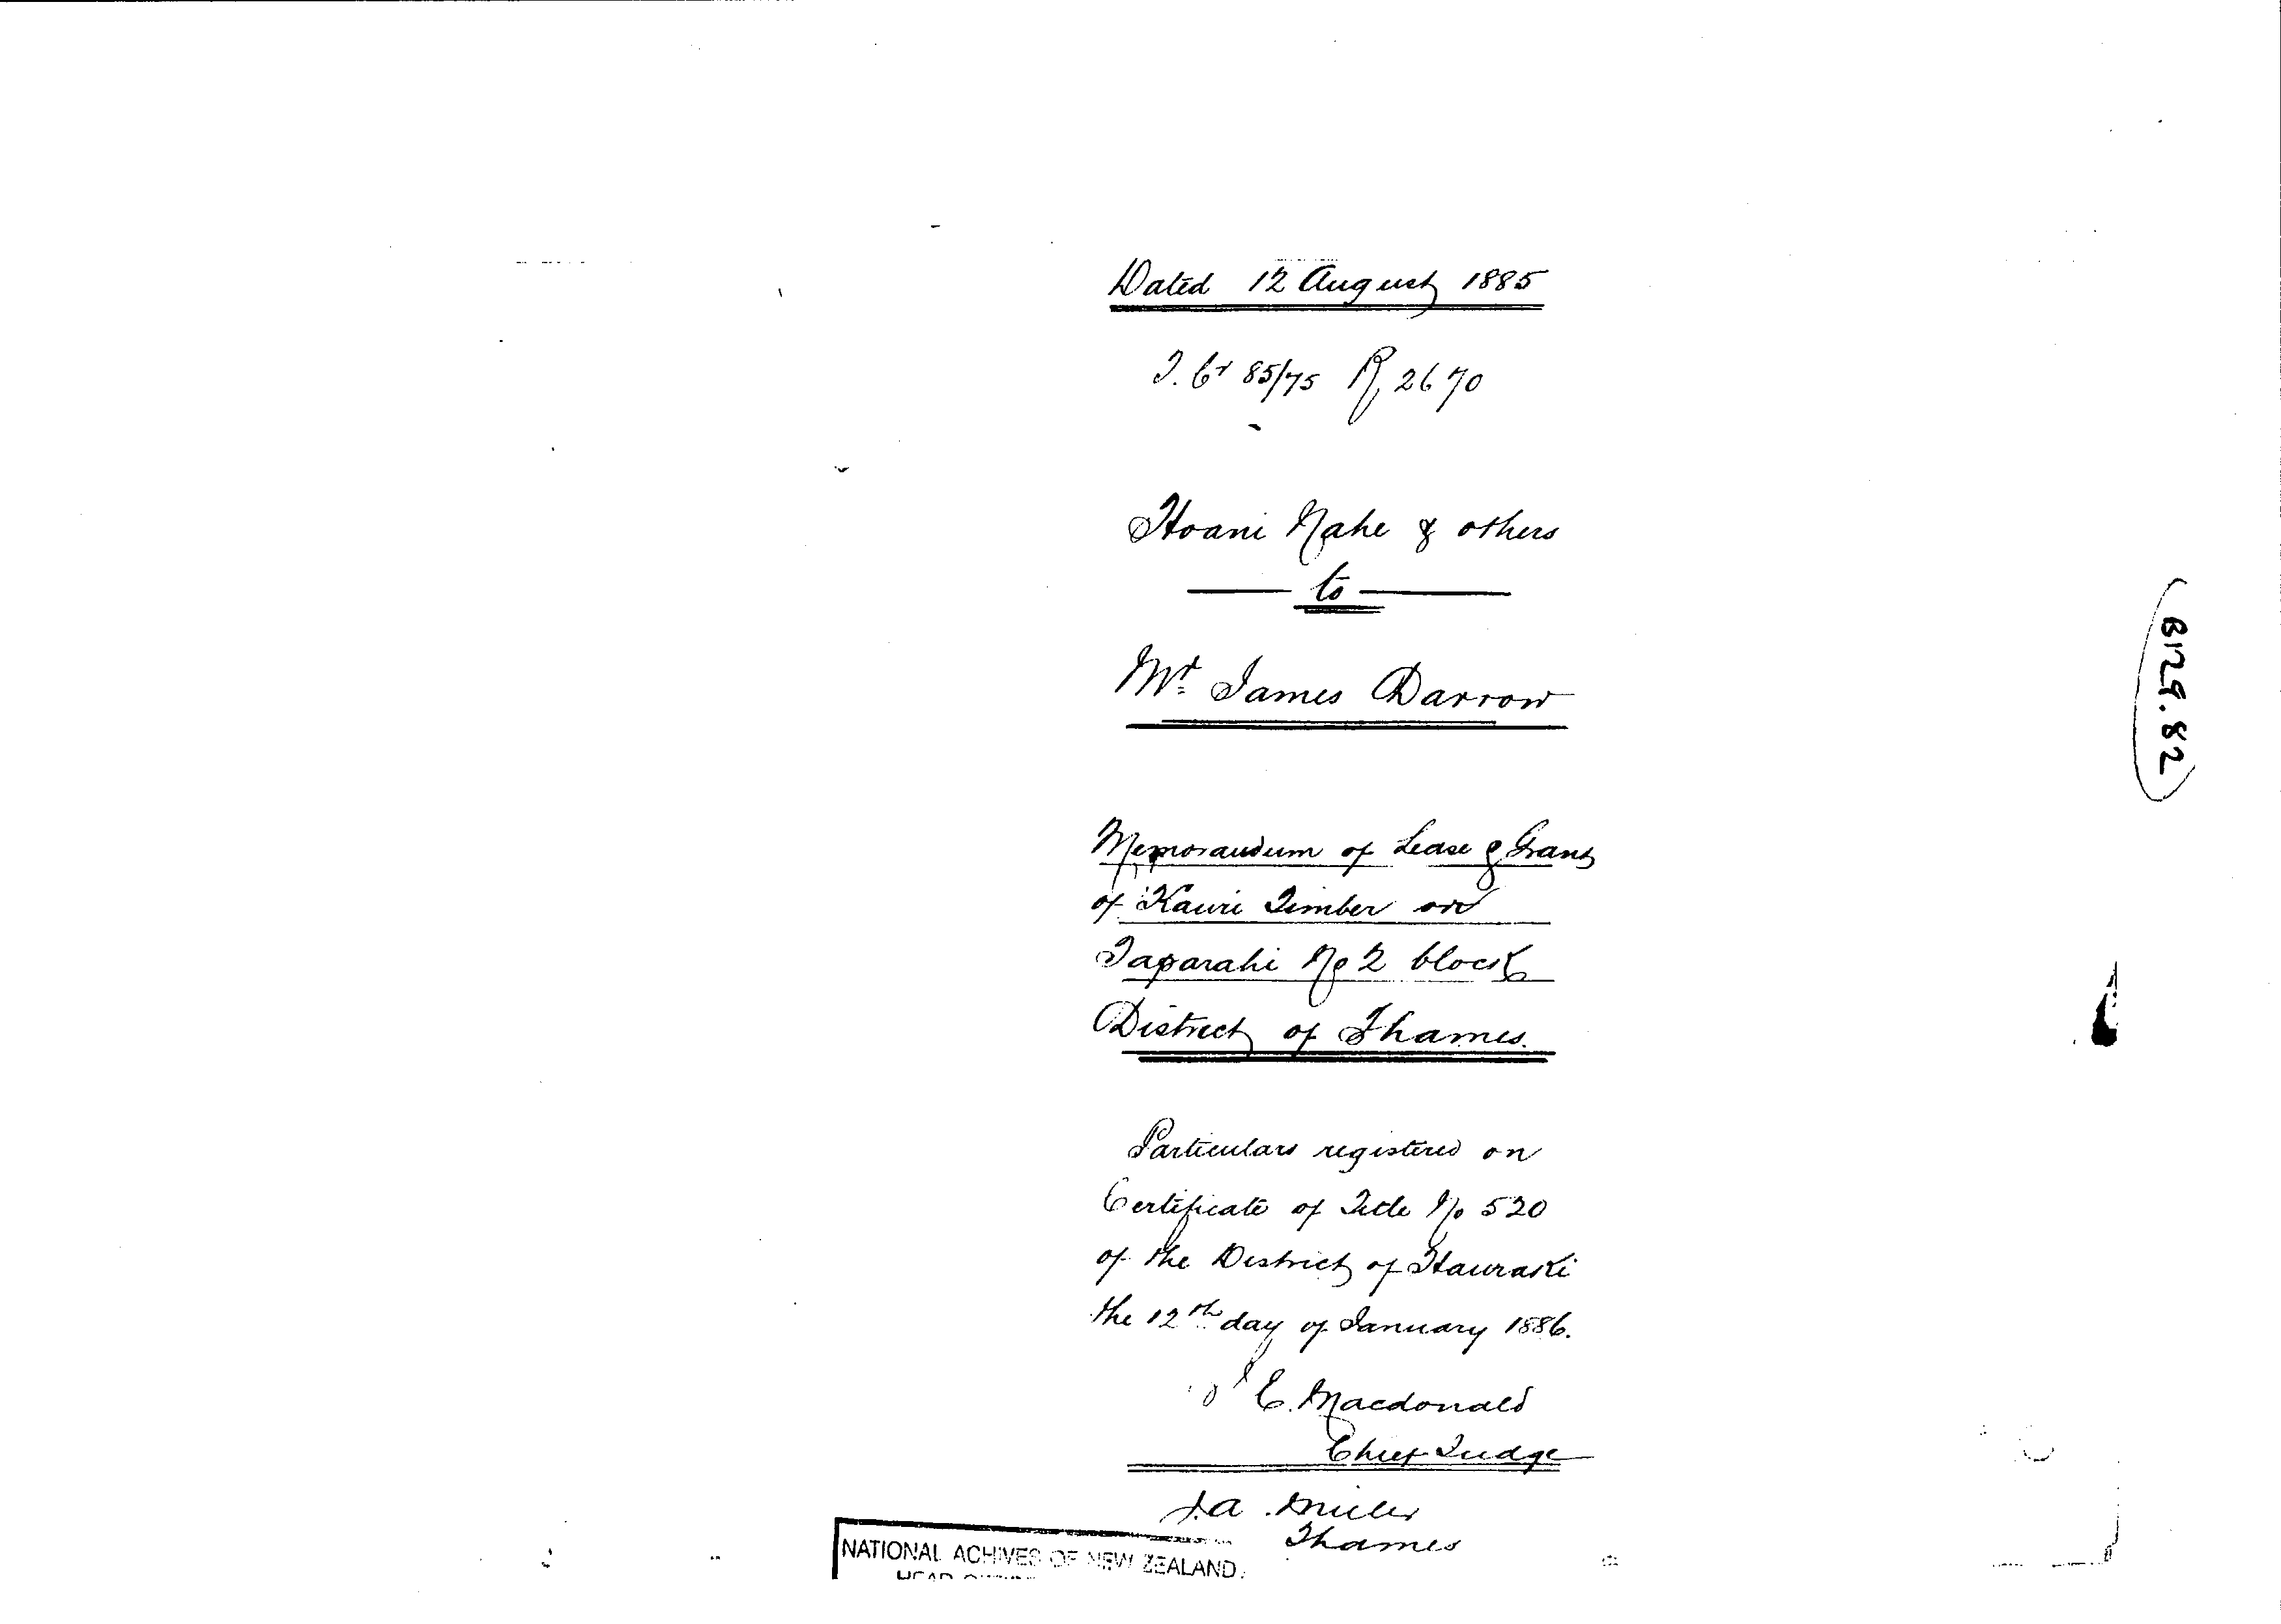 Dated 12 August 1885
85/75 R 2670
Hoani Nahe & others
to
Mr James Darrow
Memorandum of Lease & Grant
of Kauri Timber on
Taparahi No 2 block
District of Thames.
Particulars registered on
Certificate of Title No 520
of the District of Hauraki
the 12th day of January 1886.
E. Macdonald
Chief Judge
J.A. Miller
Thames
NATIONAL ACHIVES OF NEW ZEALAND
HEAD
B129.82